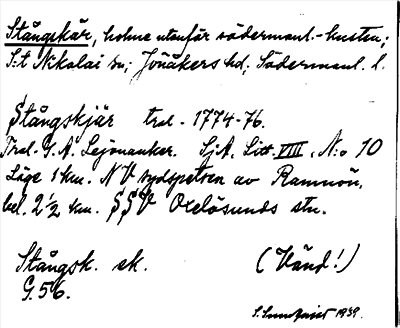 Stångskär, holme utanför södermanl.-kusten;
S:t Nikolai sn; Jönåkers hd; Södermanl. l.
Stångskjär tral. 1774-76.
Tral. G. A. Lejonanker. SjA, Litt. VIII, N:o 10
Läge 1 km. NV sydspetsen av Ramnön,
bel. 2 1/2 km. SSV Oxelösunds stn.
Stångsk. sk. (Vänd!)
G. 56.
S. Sundqvist 1939.